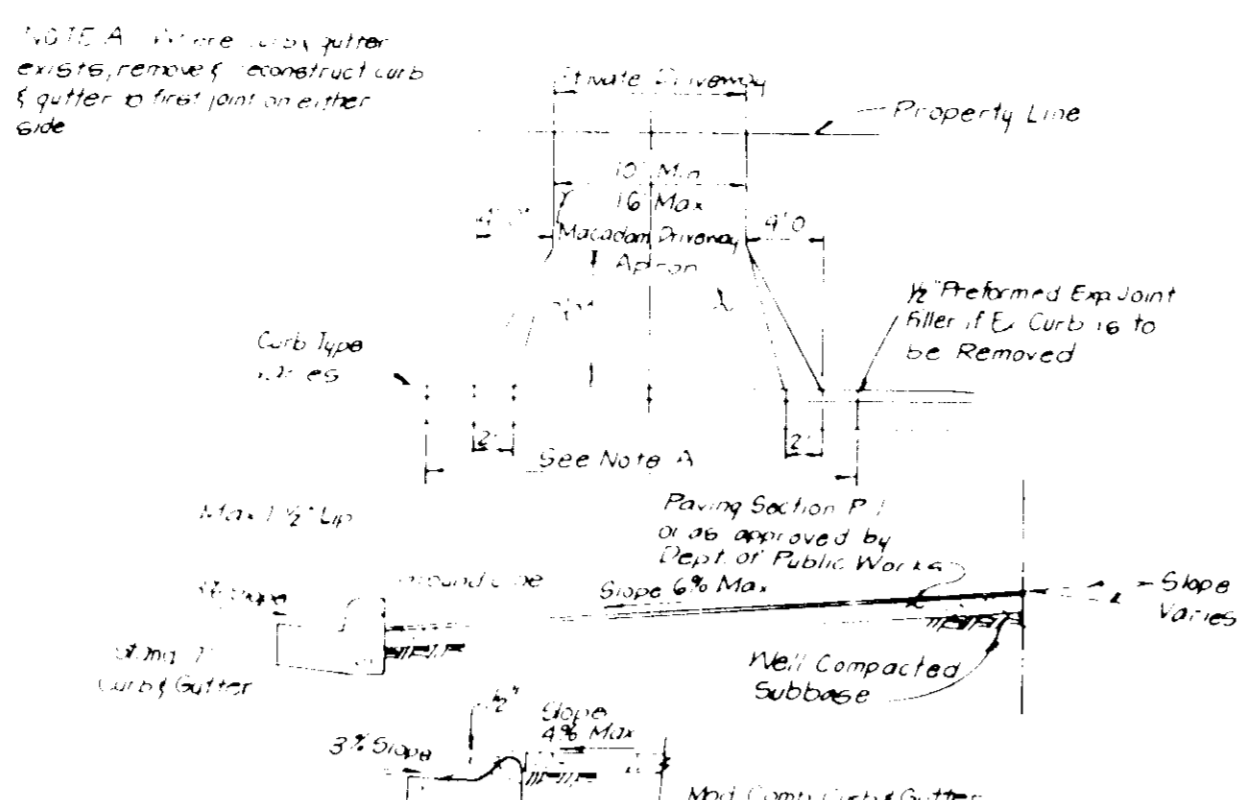 NOTE A Where curb & gutter
exists, remove & reconstruct curb
& gutter to first joint on either
side
Private Driveway
Property Line
10' Min
16' Max
4' 0"
Macadam Driveway
4' 0
Apron
1/2" Preformed Exp Joint
Filler if Ex Curb is to
be Removed
Curb Type
2'
2'
See Note A
Max 1 1/2" Lip
Paving Section P 1
or as approved by
Dept. of Public Works
Ground Line
Slope 6% Max
Slope
Varies
Curb & Gutter
Well Compacted
Subbase
1/2"
Slope
4% Max
3% Slope
Mod Comb Curb & Gutter